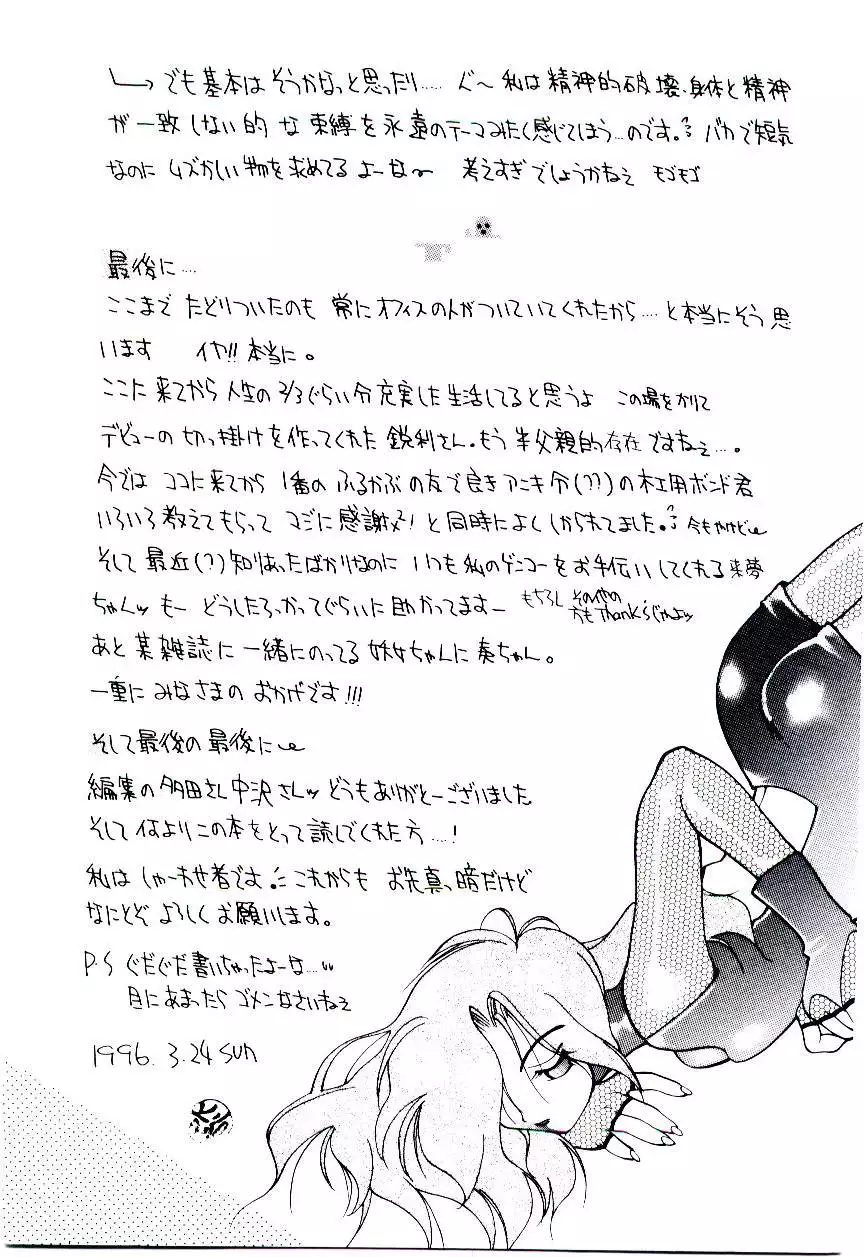 ↳ でも基本はそうかなっと思ったり…… ぐ〜 私は精神的破壊・身体と精神
が一致しない的な束縛を永遠のテーマみたく感じてしまう…のです。 バカで短気
なのに ムズかしい物を求めてるよーな〜 考えすぎでしょうかねえ モゴモゴ
最後に…
ここまで たどりついたのも 常にオフィスの人がついていてくれたから……と本当にそう思
います イヤ!!本当に。
ここに来てから人生の2/3ぐらい分充実した生活してると思うよ この場をかりて
デビューの切っ掛けを作ってくれた鋭利さん。もう半父親的存在ですねぇ…。
今では ココに来てから 1番の ふるかぶの友で良きアニキ分(??)の木工用ボンド君
いろいろ教えてもらって マジに感謝 と同時によくしかられてました。 今もやけど
そして最近(?)知りあったばかりなのに いつも私のゲンコーをお手伝いしてくれる来夢
ちゃんッ もー どうしたろかってぐらいに助かってますー もちろん そのやの方もThank'sじゃよッ
あと某雑誌に一緒にのってる ちゃんに奏ちゃん。
一重に みなさまの おかげです!!!
そして最後の最後に
編集の多田さん中沢さんッ どうもありがとーございました
そして何よりこの本をとって読んでくれた方……!
私はしゃーわせ者です。 これからも お先真っ暗だけど
なにとぞ よろしく お願いします。
P.S ぐだぐだ書いちゃったよーな…
目にあまったら ゴメンなさいねぇ
1996. 3.24 SUN